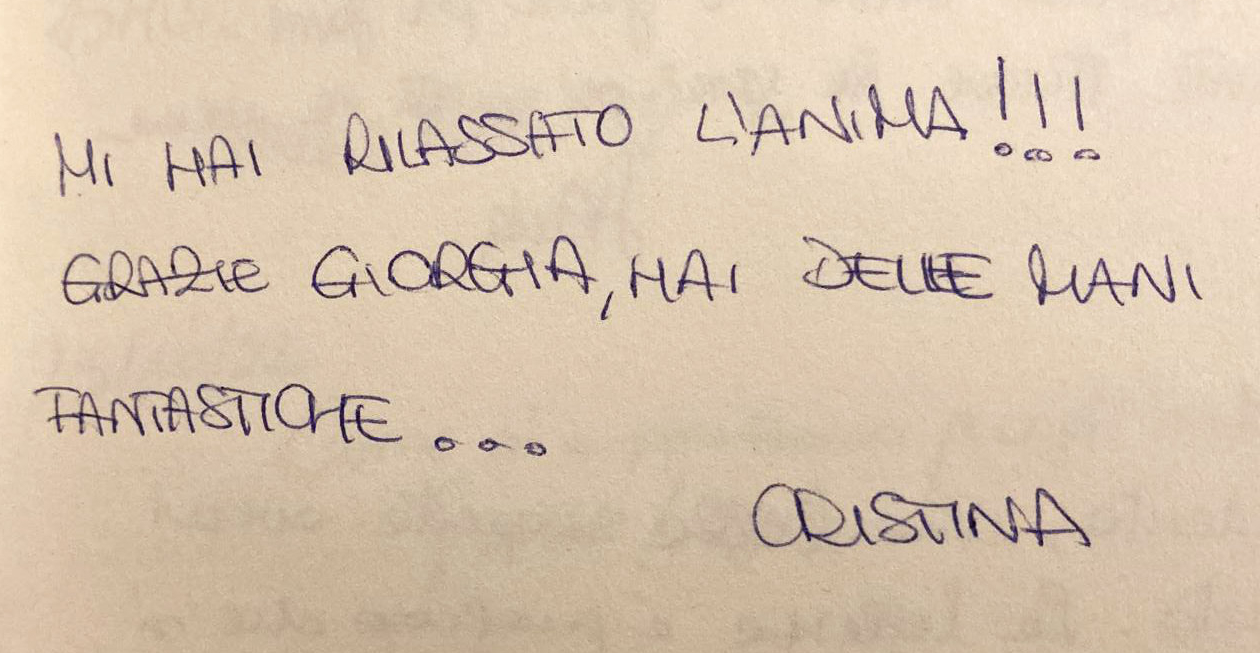 MI HAI RILASSATO L'ANIMA!!!
GRAZIE GIORGIA, HAI DELLE MANI
FANTASTICHE...
CRISTINA